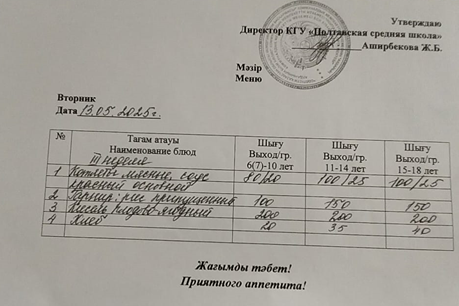 Утверждаю
Директор КГУ «Полтавская средняя школа»
Аширбекова Ж.Б.
Мәзір
Меню
Вторник
Дата 13.05.2025г.
№ Тағам атауы Шығу Шығу Шығу
Наименование блюд Выход/гр. Выход/гр. Выход/гр.
III неделя 6(7)-10 лет 11-14 лет 15-18 лет
1 Котлеты мясные, соус 80/20 100/25 100/25
красный основной
2 Гарнир: рис припущенный 100 150 150
3 Кисель плодово-ягодный 200 200 200
4 Хлеб 20 35 40
Жағымды тәбет!
Приятного аппетита!